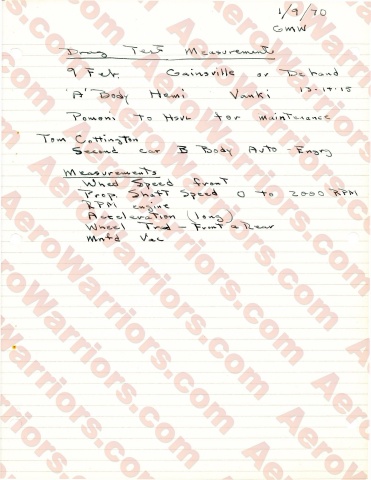 1/9/70
GMW
Drag Test Measurement
9 Feb. Gainsville or Deland
'A' Body Hemi Vanki 13-14-15
Pomoni to Hsvl for maintenance
Tom Cottington
Second car B Body Auto - Engry
Measurements
Wheel Speed front
Prop. Shaft Speed 0 to 2000 RPM
RPM engine
Acceleration (long)
Wheel Trvl - Front & Rear
Mnfd Vac
AeroWarriors.com